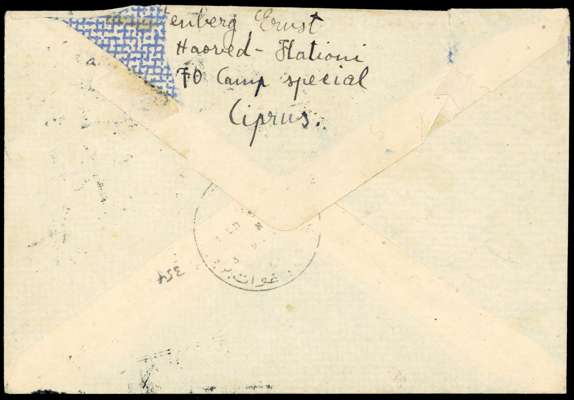 enberg Ernst
Haoved-Hationi
70 Camp special
Ciprus.
354